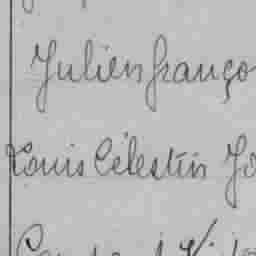 Julien franço
Louis Célestin Jo